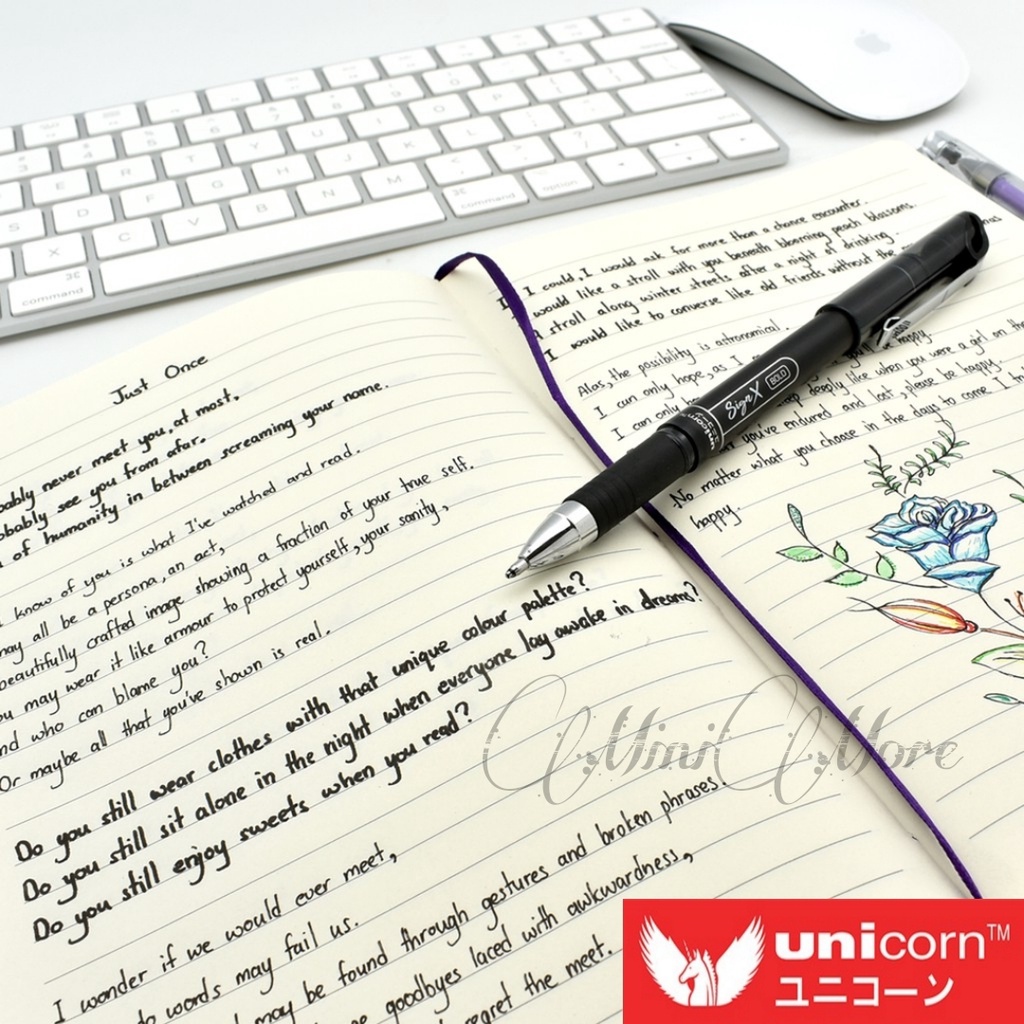 Just Once
never meet you, at most,
see you from afar.
of humanity in between screaming your name.
know of you is what I've watched and read.
may all be a persona, an act,
beautifully crafted image showing a fraction of your true self.
may wear it like armour to protect yourself, your sanity,
who can blame you?
Or maybe all that you've shown is real.
Do you still wear clothes with that unique colour palette?
Do you still sit alone in the night when everyone lay awake in dreams?
Do you still enjoy sweets when you read?
I wonder if we would ever meet,
words may fail us.
may be found through gestures and broken phrases.
goodbyes laced with awkwardness,
regret the meet.
I could I would ask for more than a chance encounter.
would like a stroll with you beneath blooming peach blossoms.
stroll along winter streets after a night of drinking.
I would like to converse like old friends without the
Alas, the possibility is astronomical.
I can only hope, as I
happy
I can
deeply like when you were a girl on
you've endured and lost, please be happy.
No matter what you choose in the days to come, I
happy.
SignX BOLD
unicorn
command
option
command
return
Mini More
unicorn™
ユニコーン